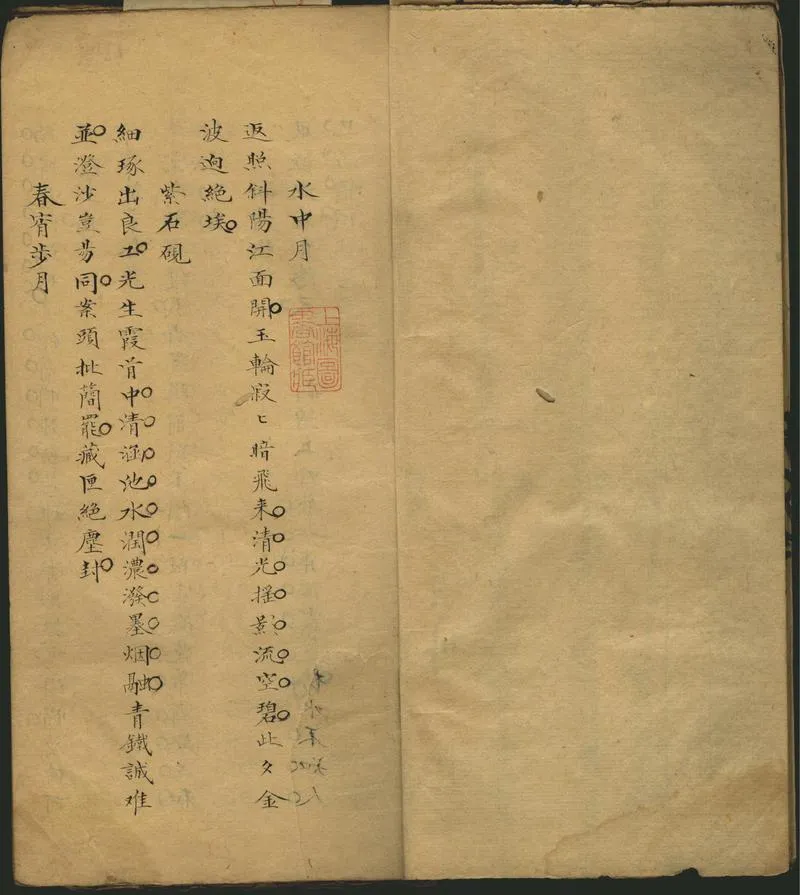 水中月
返照斜陽江面開玉輪寂〻暗飛来清光揺影流空碧此夕金
波迥絶埃
紫石硯
細琢出良工光生霞首中清涵池水潤濃潑墨烟融青鐵誠难
並澄沙豈昜同案頭批蕳罷藏匣絶塵封
春宵步月
上海圖
書館藏